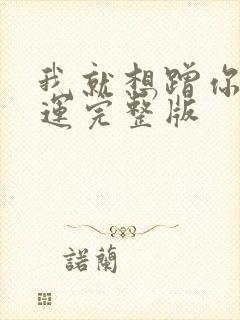 我就想蹭你
運完整版
諾蘭